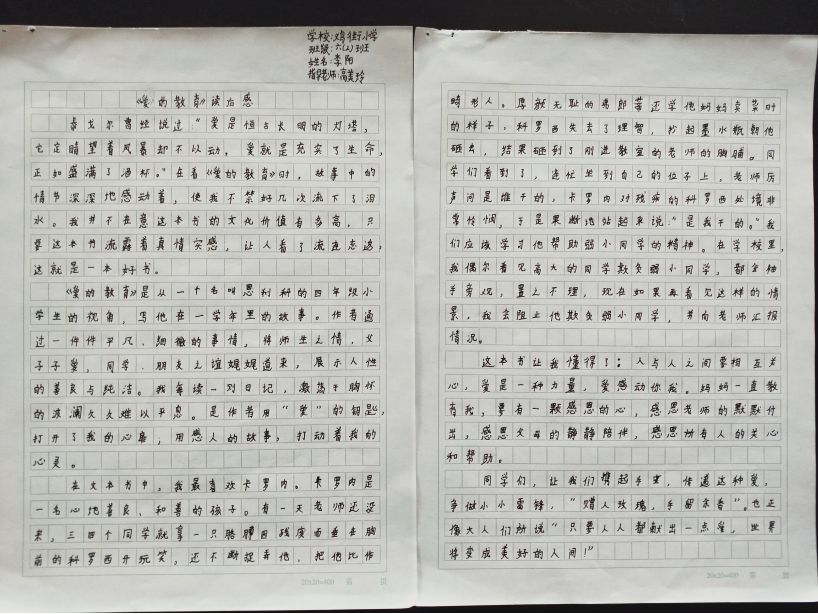 学校:鸡街小学
班级:六(2)班
姓名:李阳
指导老师:高美玲
《爱的教育》读后感
泰戈尔曾经说过:“爱是恒古长明的灯塔,
它定睛望着风暴却不以动,爱就是充实了生命,
正如盛满了酒杯。”在看《爱的教育》时,故事中的
情节深深地感动着,使我不禁好几次流下了泪
水。我并不在意这本书的文化价值有多高,只
要这本书流露着真情实感,让人看了流连忘返,
这就是一本好书。
《爱的教育》是从一个名叫恩利科的四年级小
学生的视角,写他在一学年里的故事。作者通
过一件件平凡、细微的事情,将师生之情,父
子子爱,同学、朋友之谊娓娓道来,展示人性
的善良与纯洁。我每读一则日记,激荡于胸怀
的波澜久久难以平息。是作者用“爱”的钥匙,
打开了我的心扉;用感人的故事,打动着我的
心灵。
在文本书中,我最喜欢卡罗内。卡罗内是
一名心地善良、和善的孩子。有一天老师还没
来,三四个同学就拿一只胳膊因残废而垂在胸
前的科罗西开玩笑,还不断捉弄他,把他比作
畸形人。厚颜无耻的弗郎蒂还学他妈妈卖菜时
的样子,科罗西失去了理智,抄起墨水瓶朝他
砸去,结果砸到了刚进教室的老师的胸脯。同
学们看到了,连忙坐到自己的位子上,老师厉
声问是谁干的,卡罗内对残疾的科罗西处境非
常怜悯,于是果断地站起来说:“是我干的。”我
们应该学习他帮助弱小同学的精神。在学校里,
我偶尔看见高大的同学欺负弱小同学,都会袖
手旁观,置之不理,现在如果再看见这样的情
景,我会阻止他欺负弱小同学,并向老师汇报
情况。
这本书让我懂得了:人与人之间要相互关
心,爱是一种力量,爱感动你我。妈妈一直教
育我,要有一颗感恩的心,感恩老师的默默付
出,感恩父母的静静陪伴,感恩所有人的关心
和帮助。
同学们,让我们携起手来,传递这种爱,
争做小小雷锋,“赠人玫瑰,手留余香”。也正
像大人们所说“只要人人都献出一点爱,世界
将变成美好的人间!”
20x20=400 第 页
20x20=400 第 页